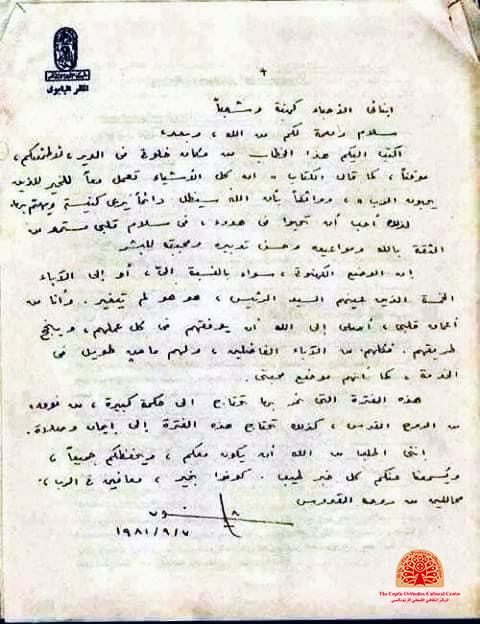 المقر البابوى
أبنائى الأحباء كهنة وشعباً
سلام ونعمة لكم من الله، وبعد،
أكتب اليكم هذا الخطاب من مكان خلوة فى الدير، لأطمئنكم،
موقناً، كما قال الكتاب، ان كل الأشياء تعمل معاً للخير للذين
يحبون الرب، وواثقاً بأن الله سيظل دائماً يرعى كنيسته ويهتم بها
لذلك أحب أن تحيوا فى هدوء، فى سلام قلبى مستمد من
الثقة بالله ومواعيده وحسن تدبيره ومحبته للبشر
إن الوضع الكهنوتى، سواء بالنسبة الىّ، أو إلى الآباء
الخمسة الذين عينهم السيد الرئيس، هو هو لم يتغير. وأنا من
أعماق قلبى، أصلى إلى الله أن يوفقهم فى كل عملهم، وينجح
طريقهم. فكلهم من الآباء الفاضلين، ولهم ماضٍ طويل فى
الخدمة، كما أنهم موضع محبتى.
هذه الفترة التى نمر بها تحتاج الى حكمة كبيرة، من فوق،
من الروح القدس، كذلك تحتاج هذه الفترة إلى إيمان وصلاة.
اننى اطلب من الله أن يكون معكم، ويحفظكم جميعاً،
ويُسمعنا عنكم كل خبر طيب. كونوا بخير، معافين فى الرب،
محاللين من روحه القدوس
١٩٨١/٩/٧
The Coptic Orthodox Cultural Center
المركز الثقافي القبطي الأرثوذكسي